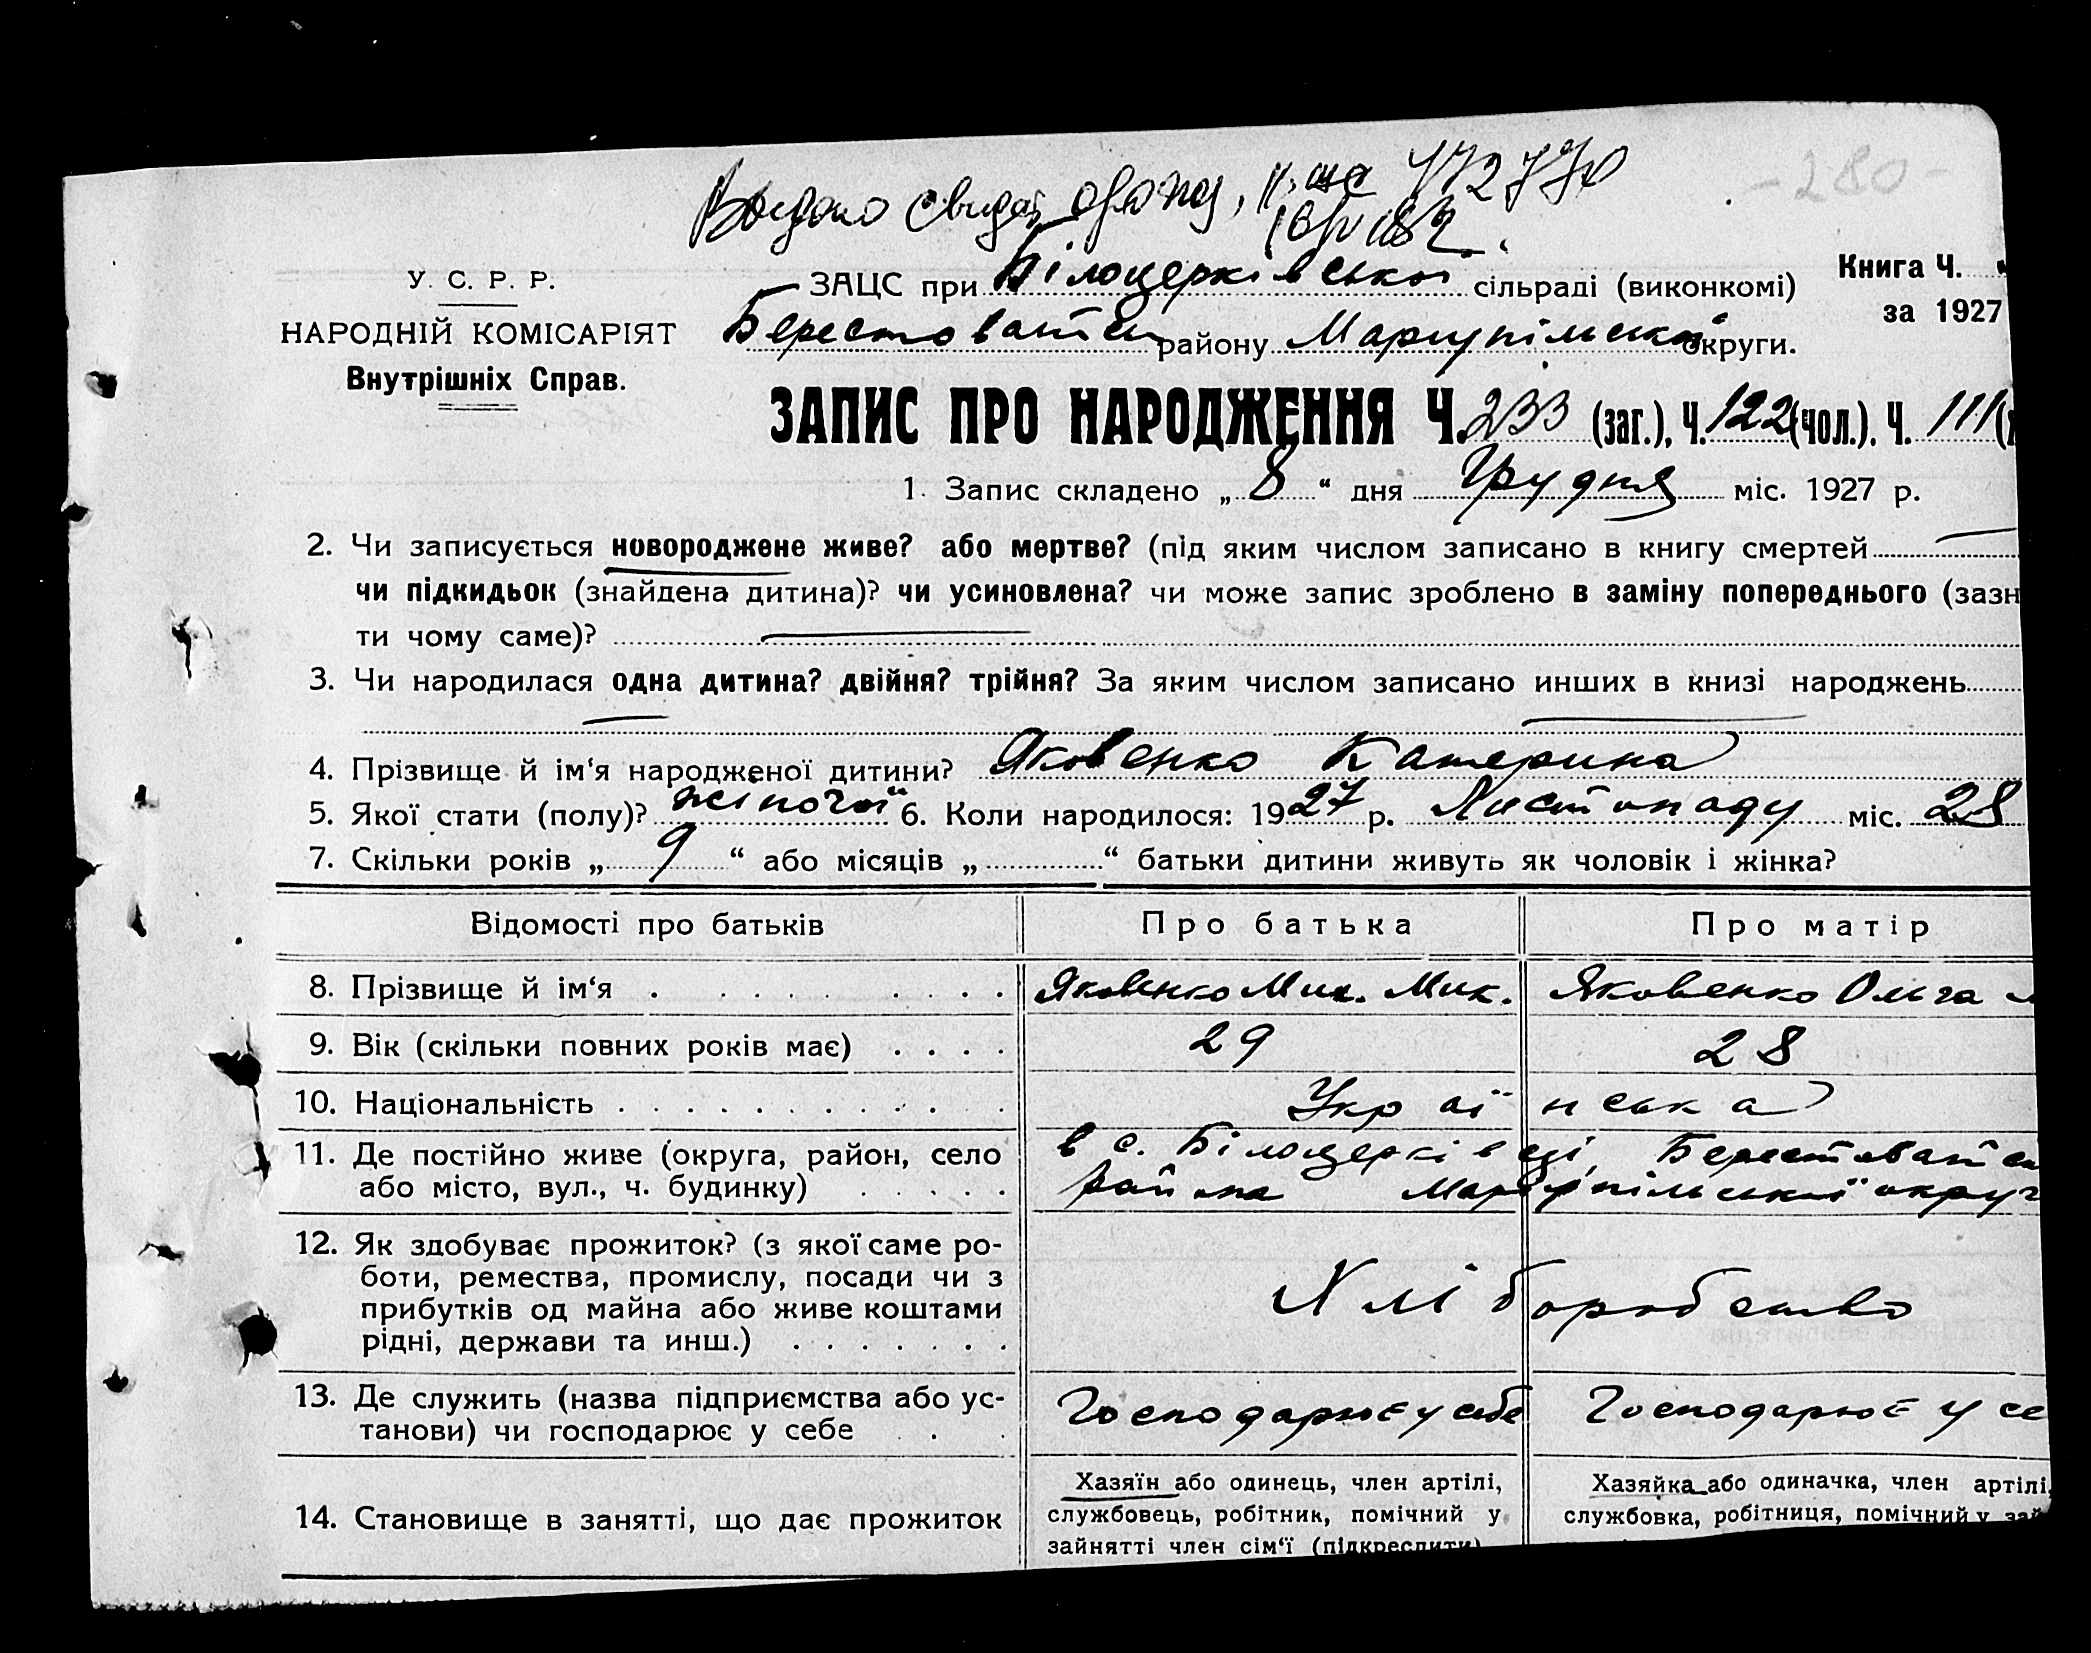 - 280 -
Видано свидоц
У. С. Р. Р.
НАРОДНІЙ КОМІСАРІЯТ
Внутрішніх Справ.
ЗАЦС при Білоцерківської сільраді (виконкомі)
Книга Ч.
за 1927
району Маріупільської округи.
ЗАПИС ПРО НАРОДЖЕННЯ Ч. 233 (заг.), Ч. 122 (чол.). Ч. 111
1. Запис складено „ 8 “ дня Грудня міс. 1927 р.
2. Чи записується новороджене живе? або мертве? (під яким числом записано в книгу смертей
чи підкидьок (знайдена дитина)? чи усиновлена? чи може запис зроблено в заміну попереднього (зазн
ти чому саме)?
3. Чи народилася одна дитина? двійня? трійня? За яким числом записано инших в книзі народжень
4. Прізвище й ім‘я народженої дитини? Яковенко Катерина
5. Якої стати (полу)? жіночої 6. Коли народилося: 1927 р. Листопаду міс. 28
7. Скільки років „ 9 “ або місяців „ “ батьки дитини живуть як чоловік і жінка?
Відомості про батьків Про батька Про матір
8. Прізвище й ім‘я Яковенко Мик. Яковенко Ольга
9. Вік (скільки повних років має) 29 28
10. Національність Українська
11. Де постійно живе (округа, район, село в с. Білоцерківці,
або місто, вул., ч. будинку) района Маріупільської округ
12. Як здобуває прожиток? (з якої саме ро-
боти, ремества, промислу, посади чи з
прибутків од майна або живе коштами
рідні, держави та инш.)
Хліборобство
13. Де служить (назва підприємства або ус-
танови) чи господарює у себе
Господарює у себе Господарює у се
14. Становище в занятті, що дає прожиток
Хазяїн або одинець, член артілі,
службовець, робітник, помічний у
зайнятті член сім‘ї (підкреслити)
Хазяйка або одиначка, член артілі,
службовка, робітниця, помічний у зай